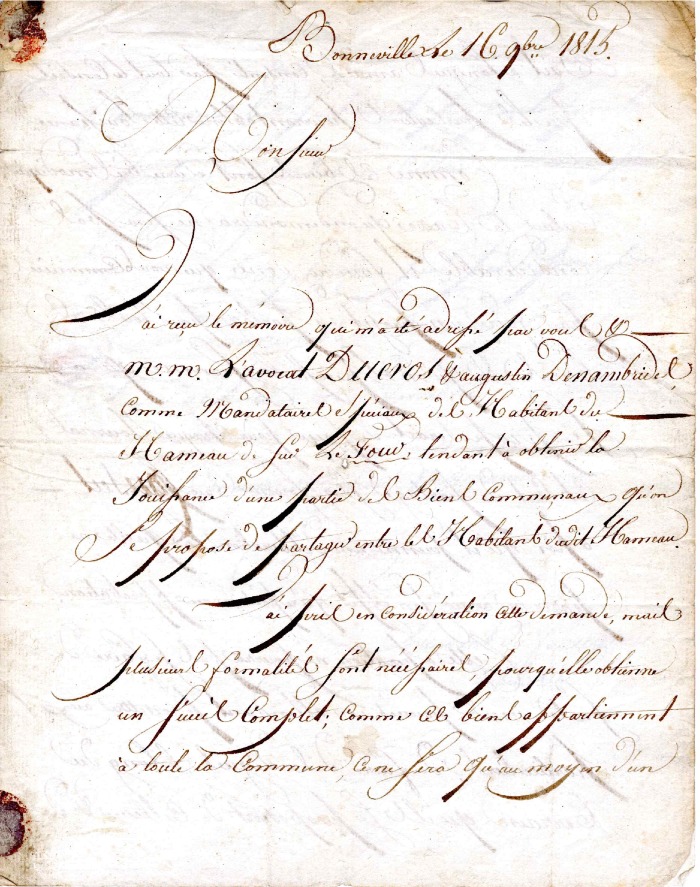 Bonneville le 16. 9bre 1815.
Monsieur
J'ai reçu le mémoire qui m'a été adressé par vous &
m.m. L'avocat Ducros & augustin Denambride
comme Mandataires spéciaux des Habitans du
Hameau de sur Le Four, tendant à obtenir la
Jouissance d'une partie des Biens Communaux qu'on
se propose de partager entre les Habitans dudit Hameau.
J'ai pris en considération cette demande, mais
plusieurs formalités sont nécessaires, pour qu'elle obtienne
un succès Complet; comme ces biens appartiennent
à toute la Commune, ce ne sera qu'au moyen d'un